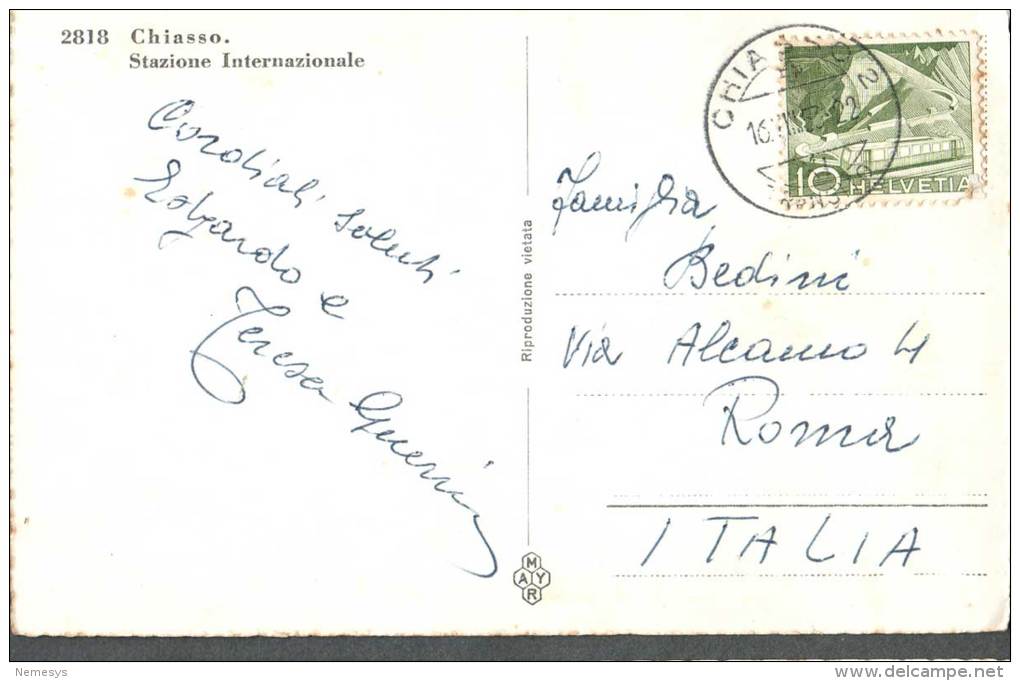 2818 Chiasso.
Stazione Internazionale
Cordiali saluti
Edgardo e
Teresa Guerrini
Riproduzione vietata
MAYR
CHIASSO 2
10 HELVETIA
Famiglia
Bedini
Via Alcamo 4
Roma
ITALIA
Nemesys
www.delcampe.net